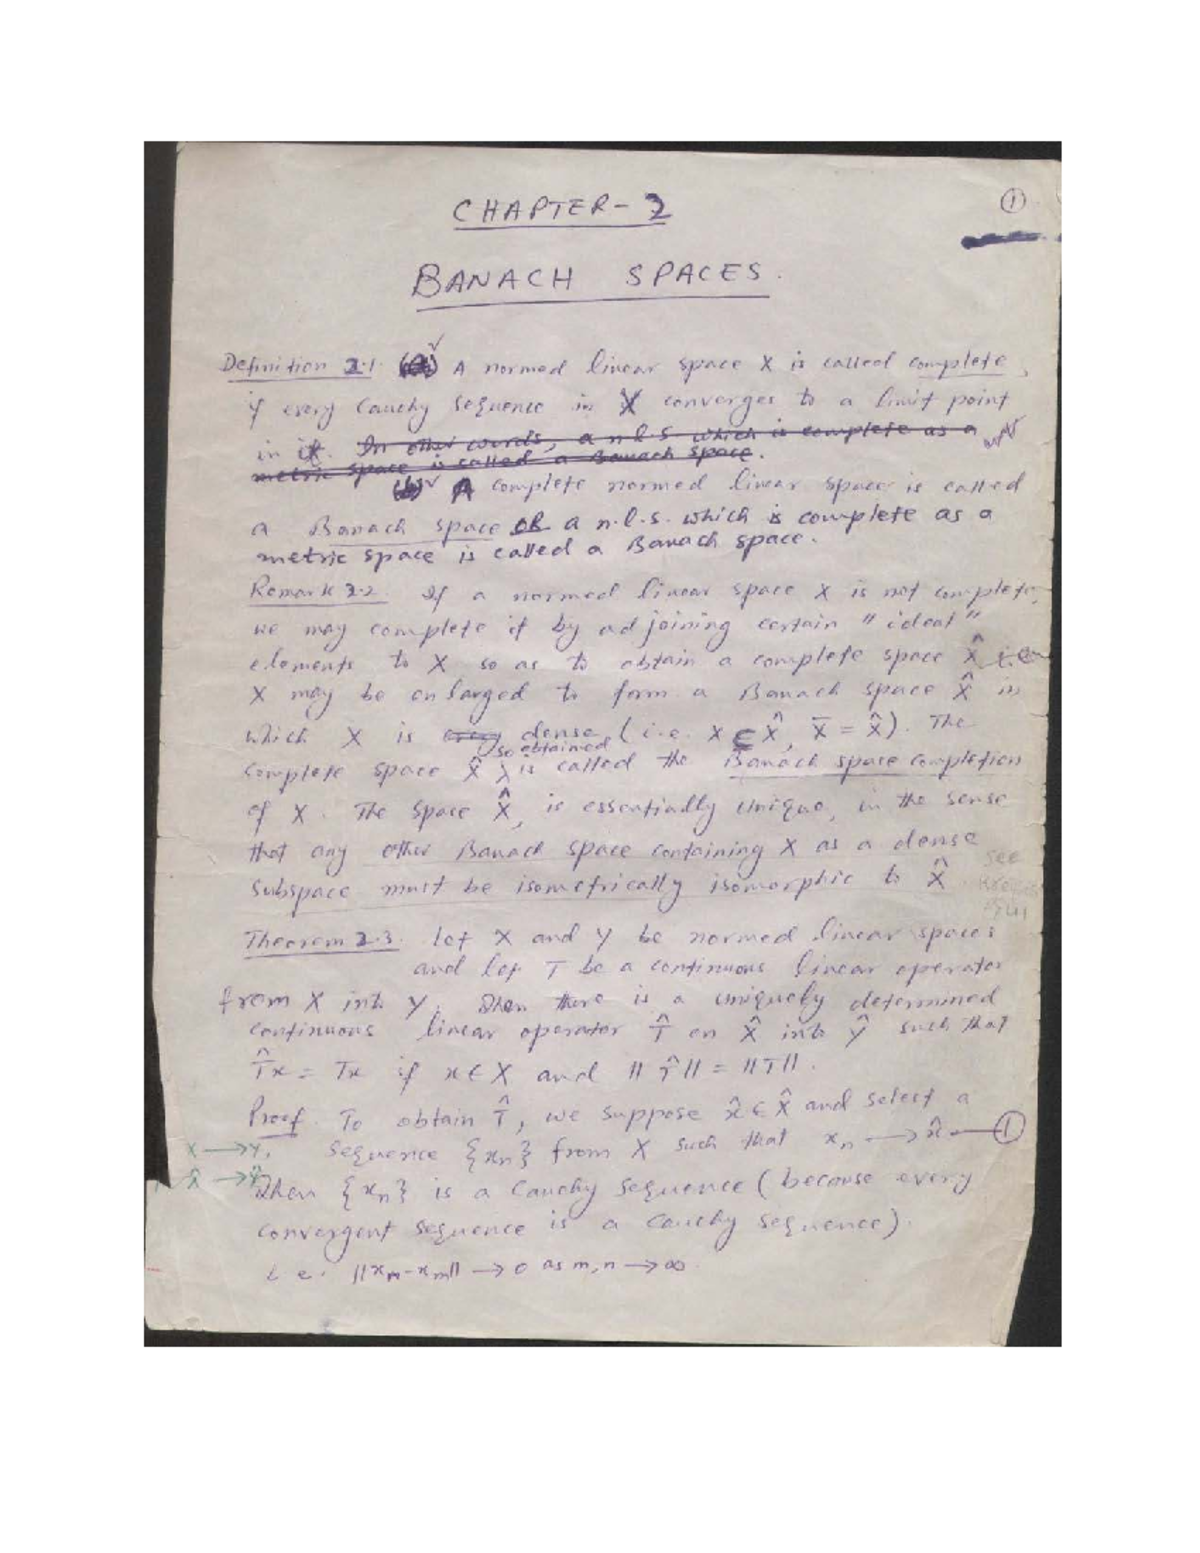 CHAPTER-2
①
BANACH SPACES.
Definition 2.1. (a) A normed linear space X is called complete,
if every Cauchy sequence in X converges to a limit point
in it. In other words, a n.l.s which is complete as a
metric space is called a Banach space.
(b) A complete normed linear space is called
a Banach space OR a n.l.s. which is complete as a
metric space is called a Banach space.
Remark 2.2. If a normed linear space X is not complete,
we may complete it by adjoining certain "ideal"
elements to X so as to obtain a complete space X̂ i.e.
X may be enlarged to form a Banach space X̂ in
which X is dense (i.e. X ⊆ X̂, X̄ = X̂). The
so obtained
complete space X̂ λ is called the Banach space completion
of X. The space X̂, is essentially unique, in the sense
that any other Banach space containing X as a dense
subspace must be isometrically isomorphic to X̂
see
Theorem 2.3. Let X and Y be normed linear spaces
and let T be a continuous linear operator
from X into Y. Then there is a uniquely determined
continuous linear operator T̂ on X̂ into Ŷ such that
T̂x = Tx if x ∈ X and ||T̂|| = ||T||.
Proof. To obtain T̂, we suppose x̂ ∈ X̂ and select a
sequence {xn} from X such that xn → x̂ — ①
X → Y,
X̂ → Ŷ
Then {xn} is a Cauchy sequence (because every
convergent sequence is a Cauchy sequence).
i.e. ||xn-xm|| → 0 as m,n → ∞